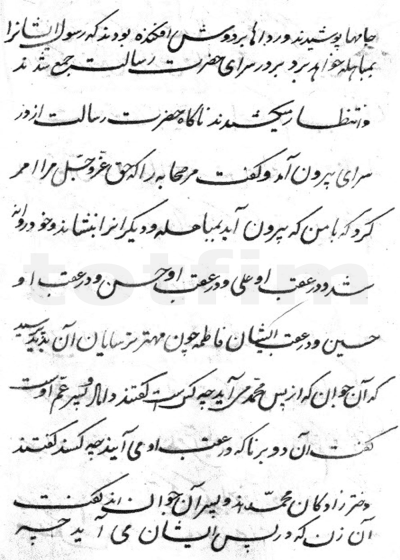 جامها پوشیدند و رداها بردوش افکنده بودند که رسول ایشانرا
بمباهله خواهد برد بر در سرای حضرت رسالت جمع شدند
و انتظار میکشیدند ناکاه حضرت رسالت از در
سرای بیرون آمد و کفت مر صحابه را که حق عزّ و جل مرا امر
کرد که با من که بیرون آید بمباهله و دیکرانرا بنشاند و خود روانه
شد و در عقب او علی و در عقب او حسن و در عقب او
حسین و در عقب ایشان فاطمه چون مهتر ترسایان آن بدید پرسید
که آن جوان که از پس محمّد می آید چه کس است کفتند داماد و پسر عمّ اوست
کفت آن دو برنا که در عقب او می آیند چه کسند کفتند
دختر زادکان محمّد اند و پسر آن جوان اند کفت
آن زن که در پس ایشان می آید چه
totfim